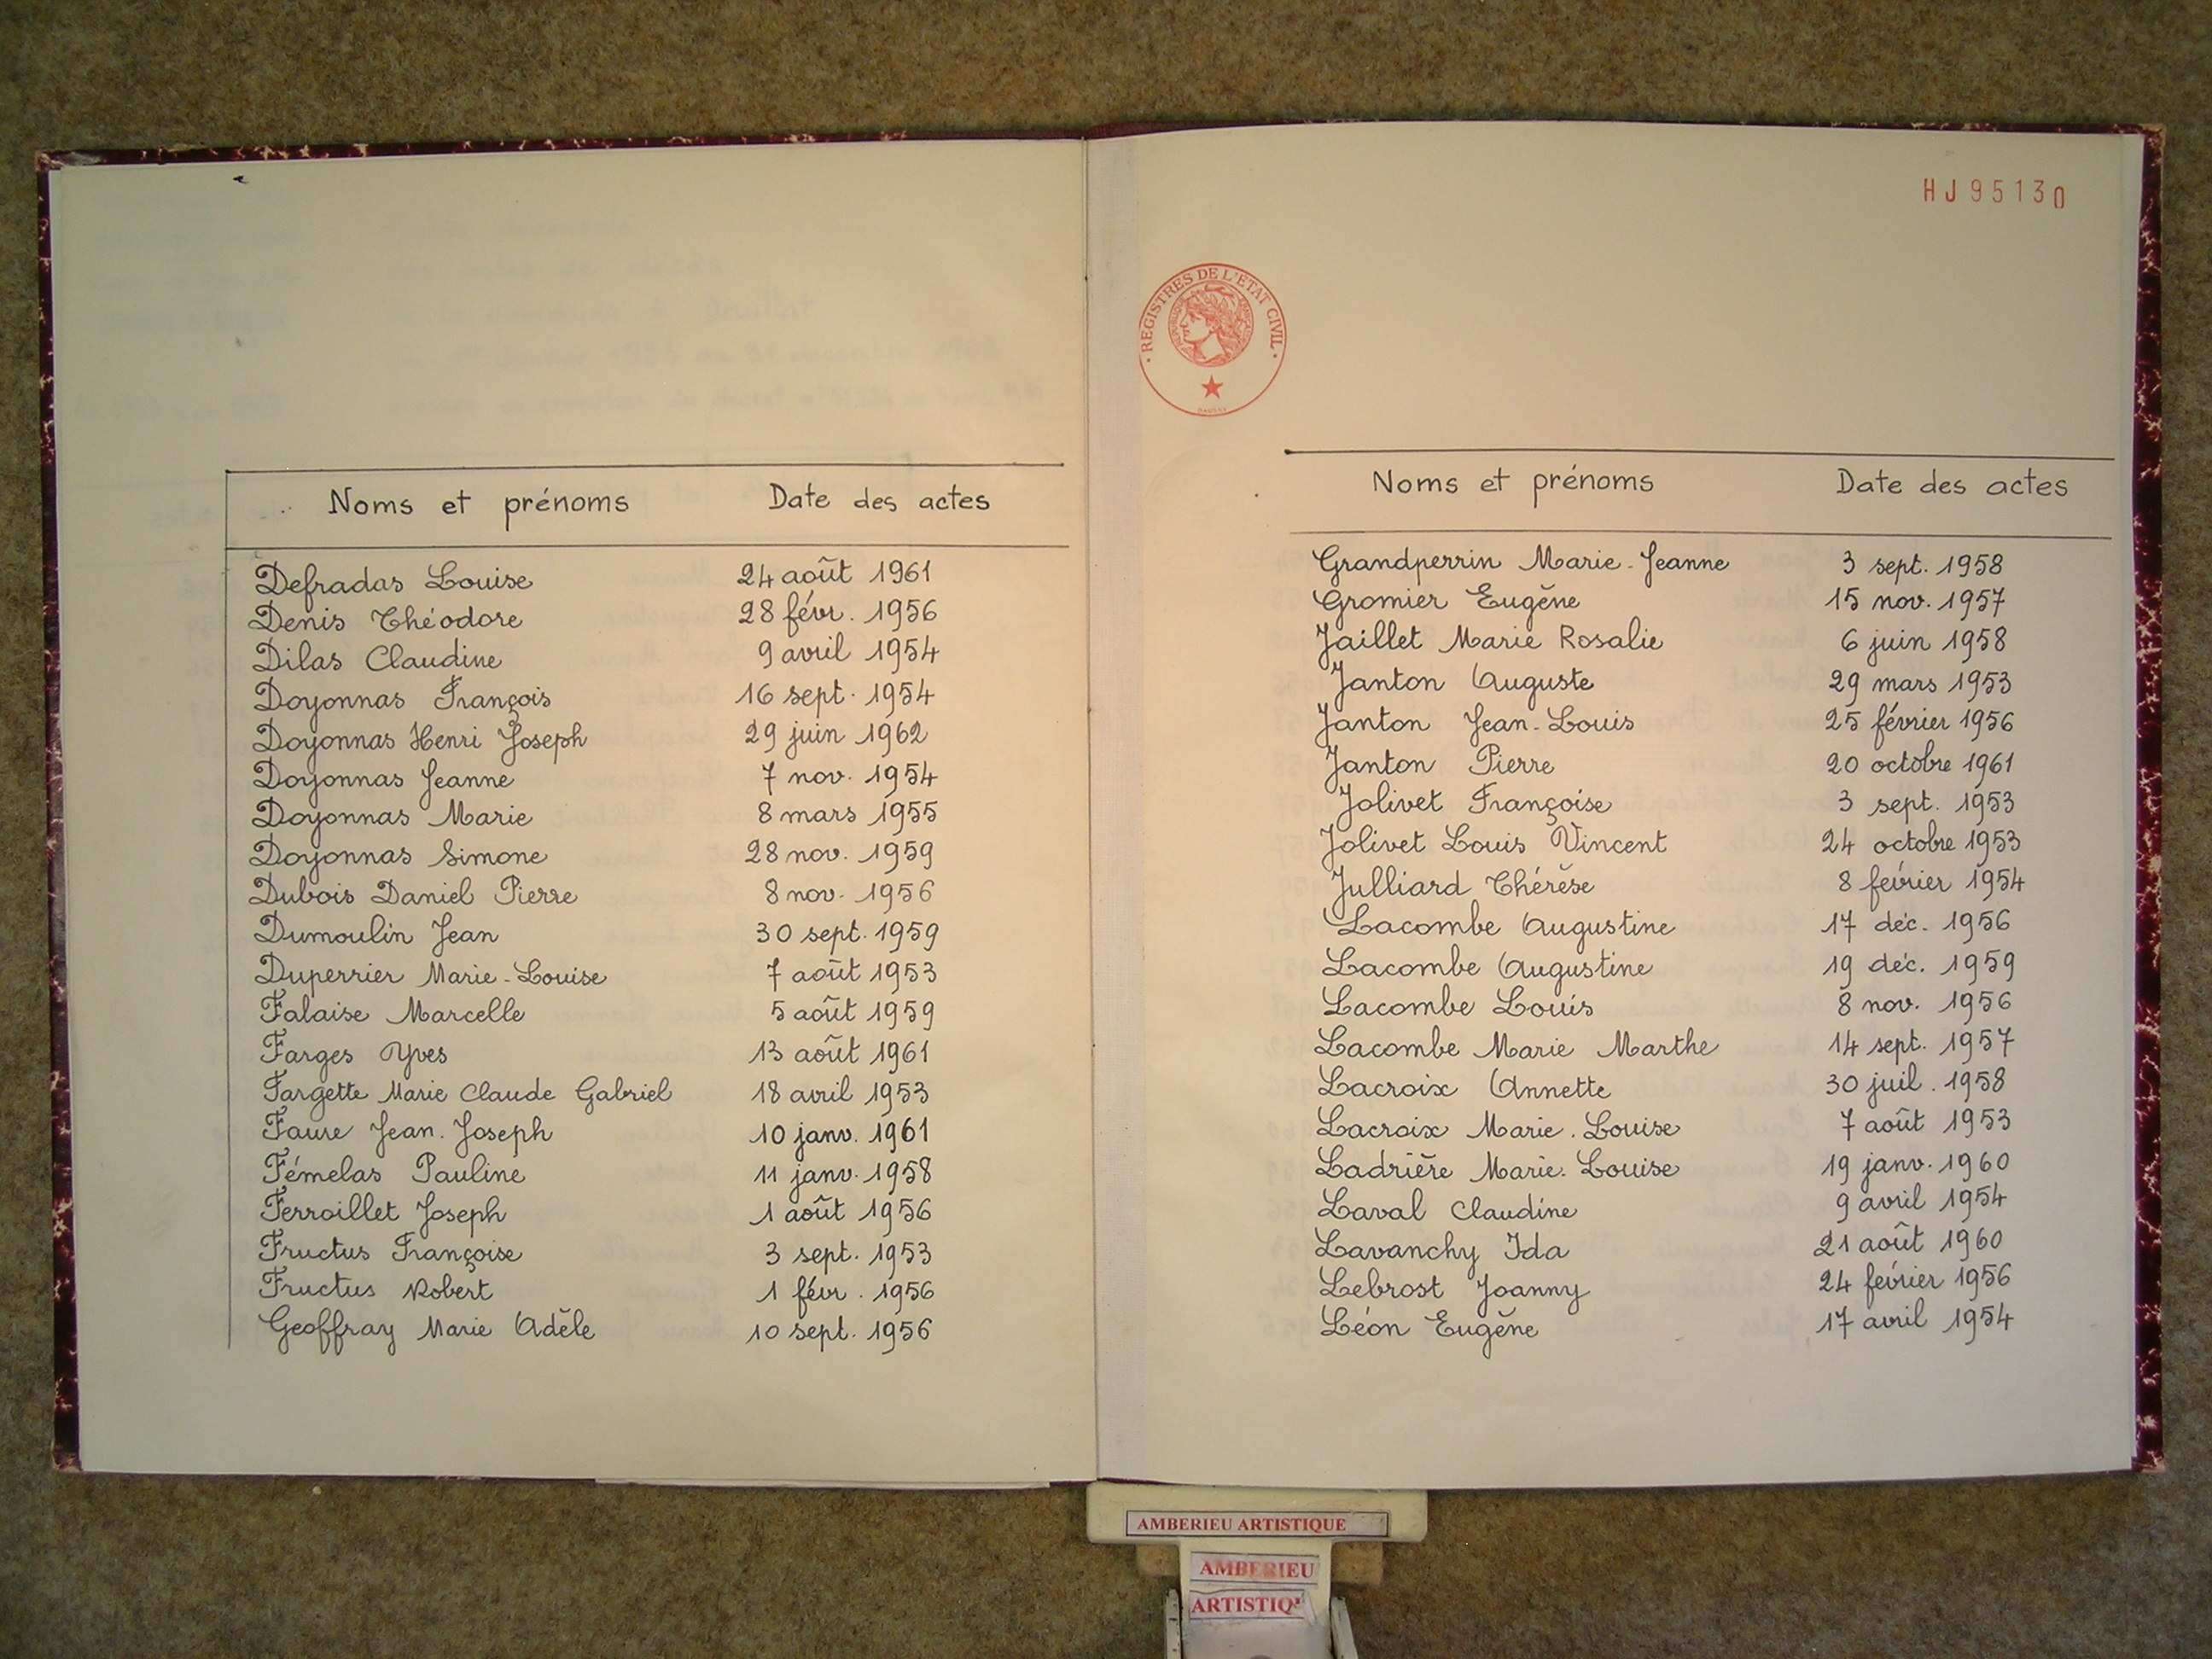 Noms et prénoms Date des actes
Defradas Louise 24 août 1961
Denis Théodore 28 févr. 1956
Dilas Claudine 9 avril 1954
Doyonnas François 16 sept. 1954
Doyonnas Henri Joseph 29 juin 1962
Doyonnas Jeanne 7 nov. 1954
Doyonnas Marie 8 mars 1955
Doyonnas Simone 28 nov. 1959
Dubois Daniel Pierre 8 nov. 1956
Dumoulin Jean 30 sept. 1959
Duperrier Marie-Louise 7 août 1953
Falaise Marcelle 5 août 1959
Farges Yves 13 août 1961
Fargette Marie Claude Gabriel 18 avril 1953
Faure Jean-Joseph 10 janv. 1961
Fémelas Pauline 11 janv. 1958
Ferroillet Joseph 1 août 1956
Fructus Françoise 3 sept. 1953
Fructus Robert 1 févr. 1956
Geoffray Marie Adèle 10 sept. 1956
HJ95130
REGISTRES DE L'ÉTAT CIVIL
Noms et prénoms Date des actes
Grandperrin Marie-Jeanne 3 sept. 1958
Gromier Eugène 15 nov. 1957
Jaillet Marie Rosalie 6 juin 1958
Janton Auguste 29 mars 1953
Janton Jean-Louis 25 février 1956
Janton Pierre 20 octobre 1961
Jolivet Françoise 3 sept. 1953
Jolivet Louis Vincent 24 octobre 1953
Julliard Thérèse 8 février 1954
Lacombe Augustine 17 déc. 1956
Lacombe Augustine 19 déc. 1959
Lacombe Louis 8 nov. 1956
Lacombe Marie Marthe 14 sept. 1957
Lacroix Annette 30 juil. 1958
Lacroix Marie-Louise 7 août 1953
Ladrière Marie-Louise 19 janv. 1960
Laval Claudine 9 avril 1954
Lavanchy Ida 21 août 1960
Lebrost Joanny 24 février 1956
Léon Eugène 17 avril 1954
AMBERIEU ARTISTIQUE
AMBERIEU
ARTISTIQ